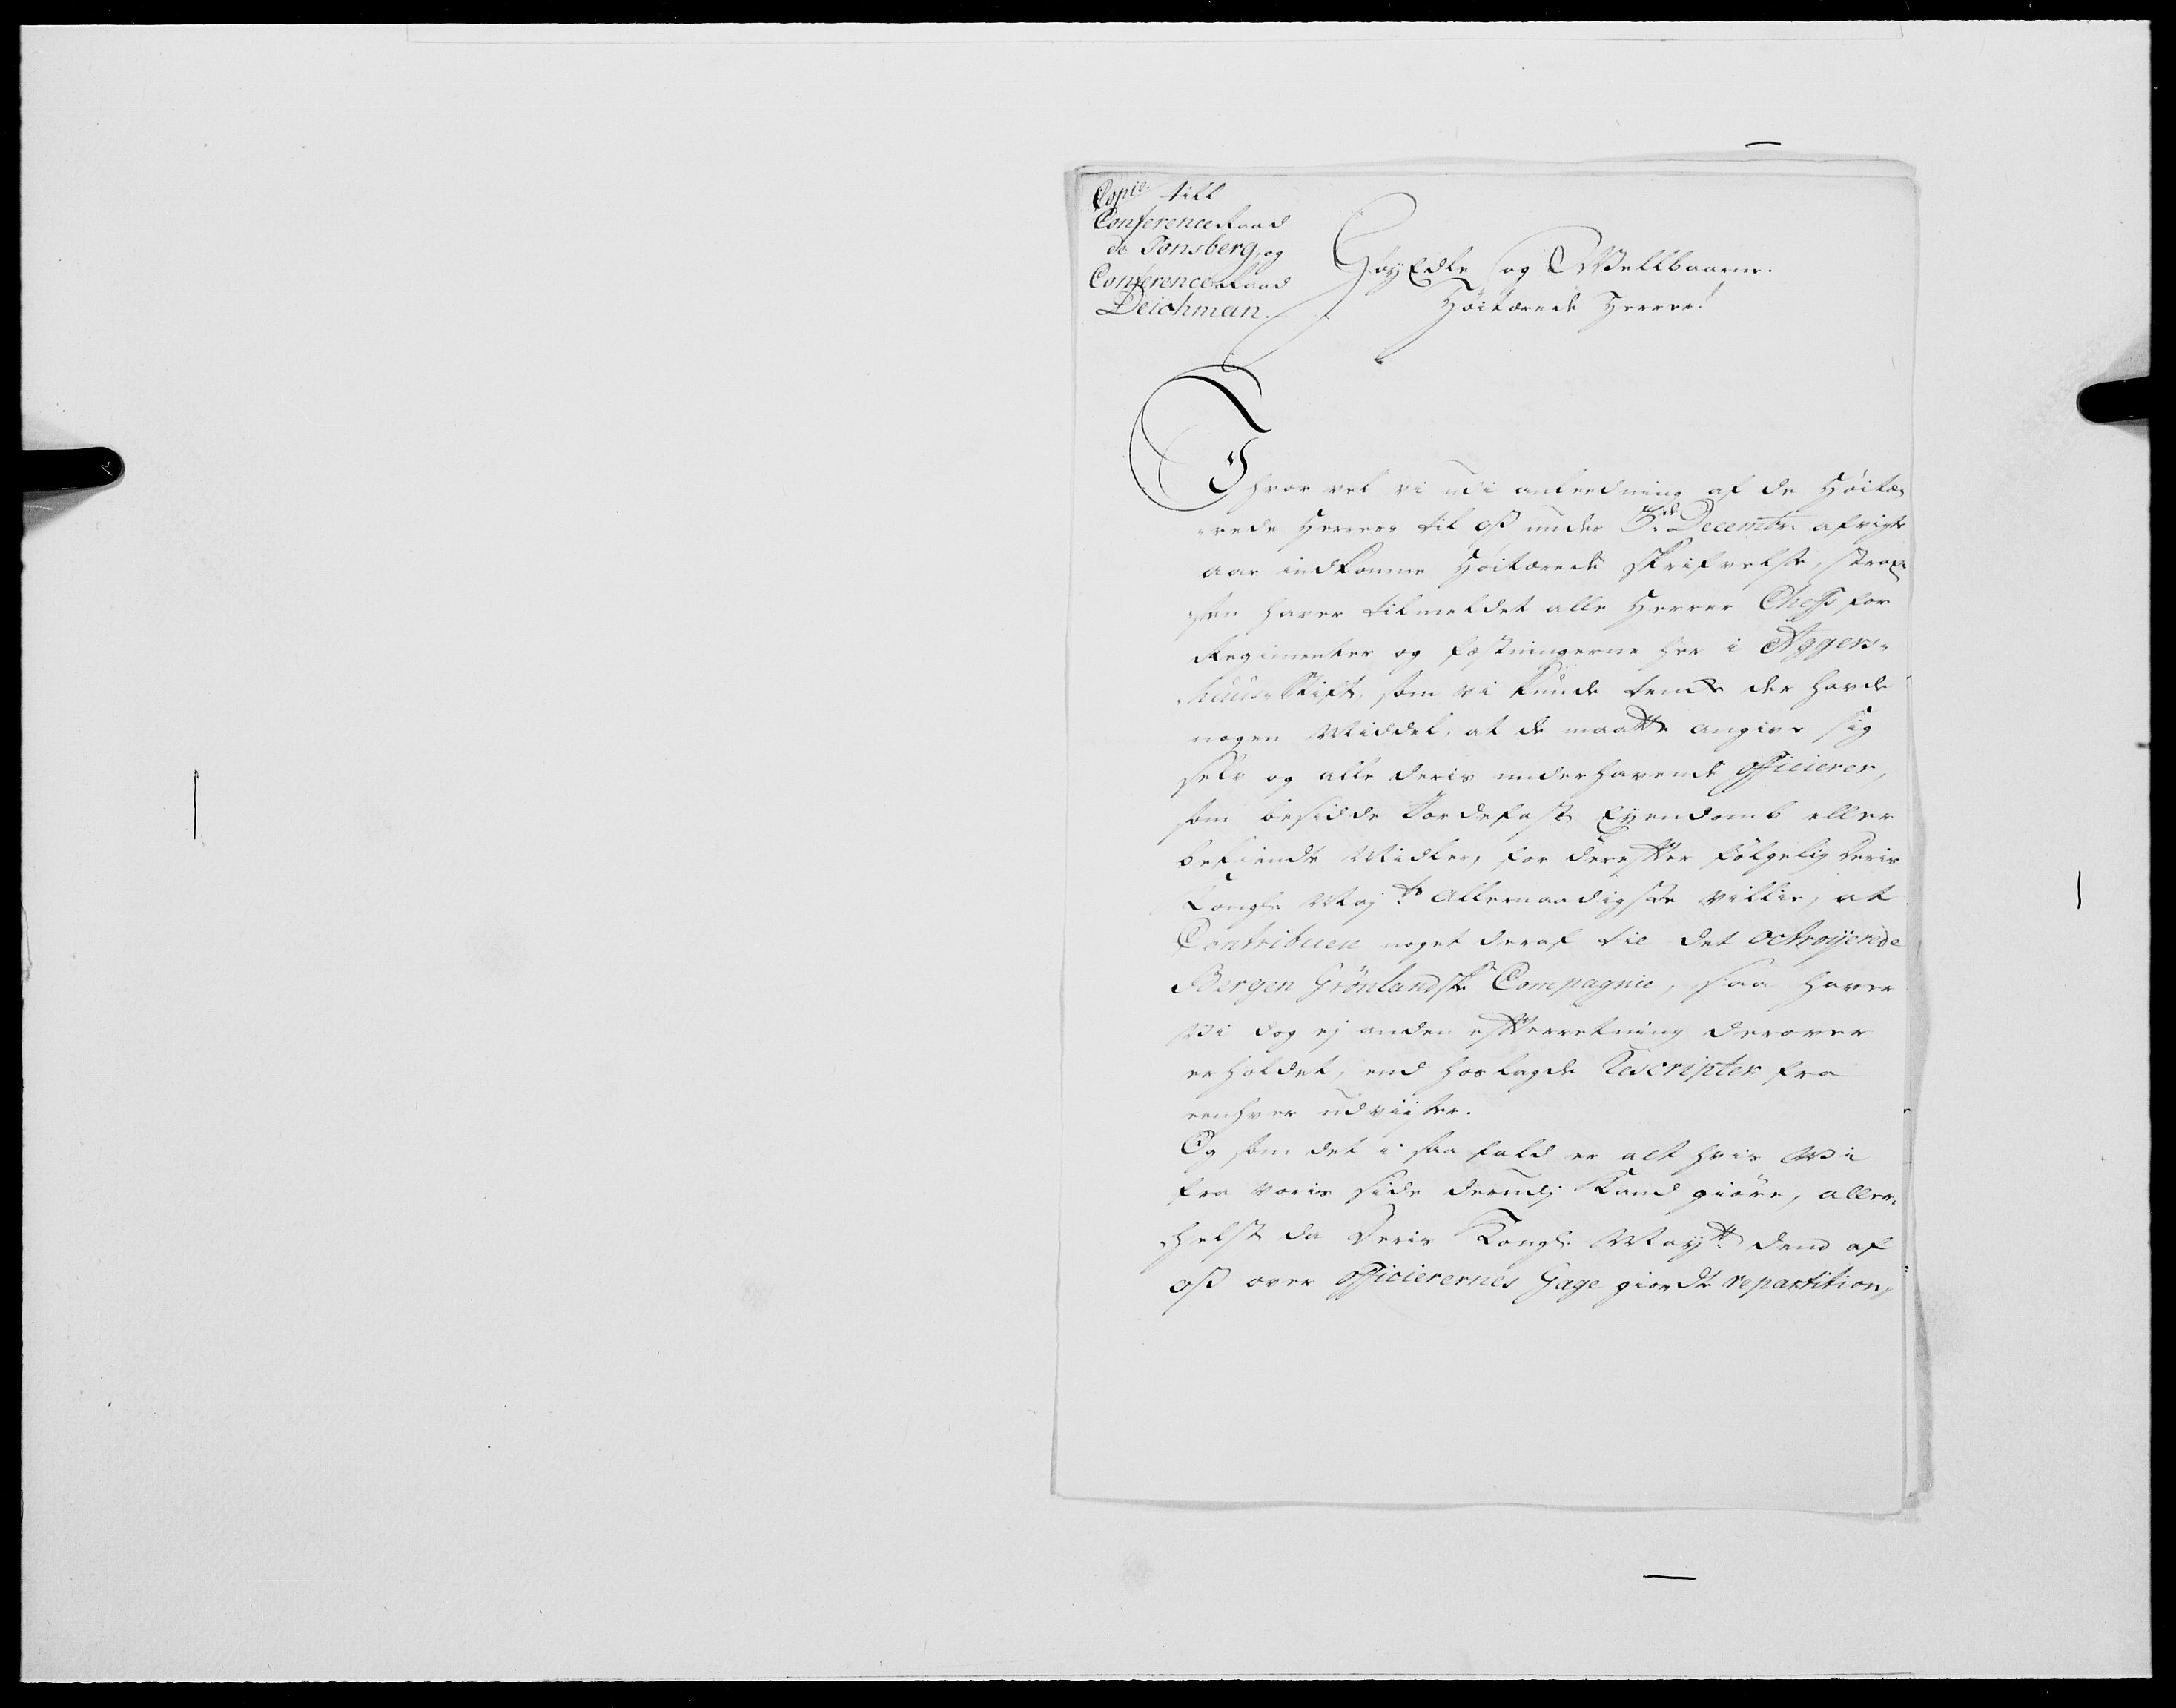 Copie till
Conference Raad
de Tonsberg, og
Conference Raad
Deichman.
HøyEdle og Wellbaarne.
Høitærede Herrer!
Ihvor vel vi udi anledning af de Høitæ-
-rede Herrers til oß under 5.de Decembr. afvigte
aar indkomne Høitærede skrifvelse, strax
haver tilmeldet alle Herrer Chefs for
Regimenter og fæstningerne her i Aggers-
huus-Stift, som vi kunde tencke der havde
nogen Middel, at de maatte angive sig
selv og alle deris underhavende Officierer,
som besidde Jordefast Eyendomb eller
bekiendte Midler, for derefter følgelig Deris
Kongl. Maj.ts Allernaadigste villie, at
Contribuere noget deraf til det octroyerede
Bergen Grönlandske Compagnie, saa haver
Vi dog ej anden efterretning derover
erholdet, end hoslagde Rescripter fra
eenhver udviiser.
Og som det i saa fald er alt hvis Vi
fra voris side derudj Kand giöre, aller-
-helst da Deris Kongl. May.tt dend af
oß over Officierernes Gage giorde repartition,